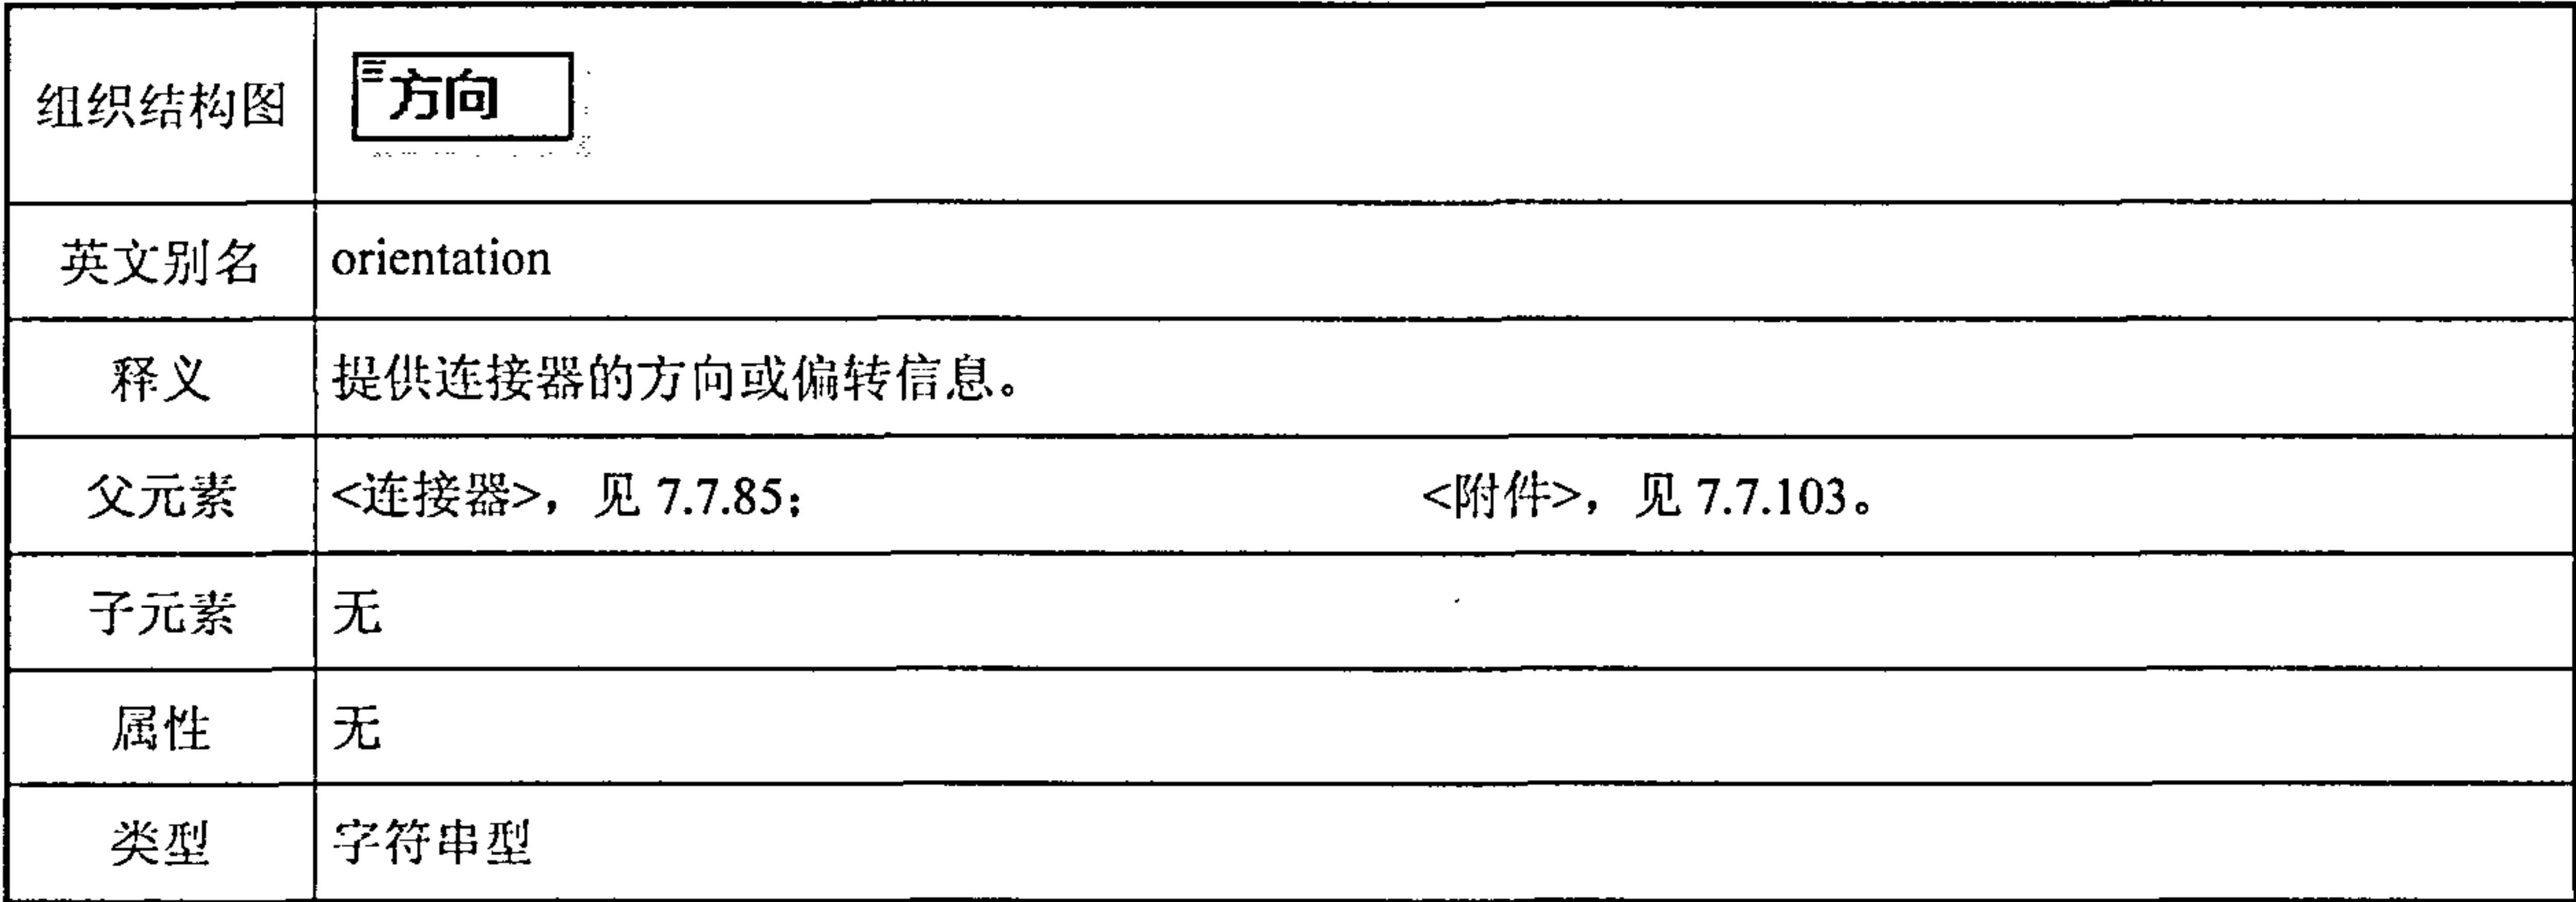 组织结构图 方向
英文别名 orientation
释义 提供连接器的方向或偏转信息。
父元素 <连接器>，见 7.7.85； <附件>，见 7.7.103。
子元素 无
属性 无
类型 字符串型